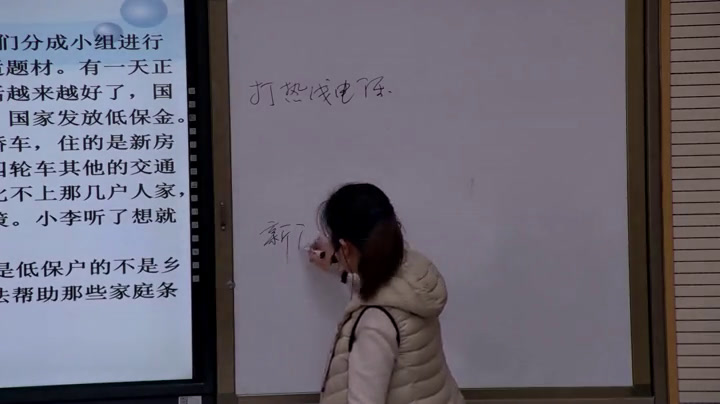 们分成小组进行
题材。有一天正
越来越好了，国
国家发放低保金。
轿车，住的是新房
四轮车其他的交通
比不上那几户人家，
。小李听了想就
是低保户的不是乡
法帮助那些家庭条
打热线电话
新